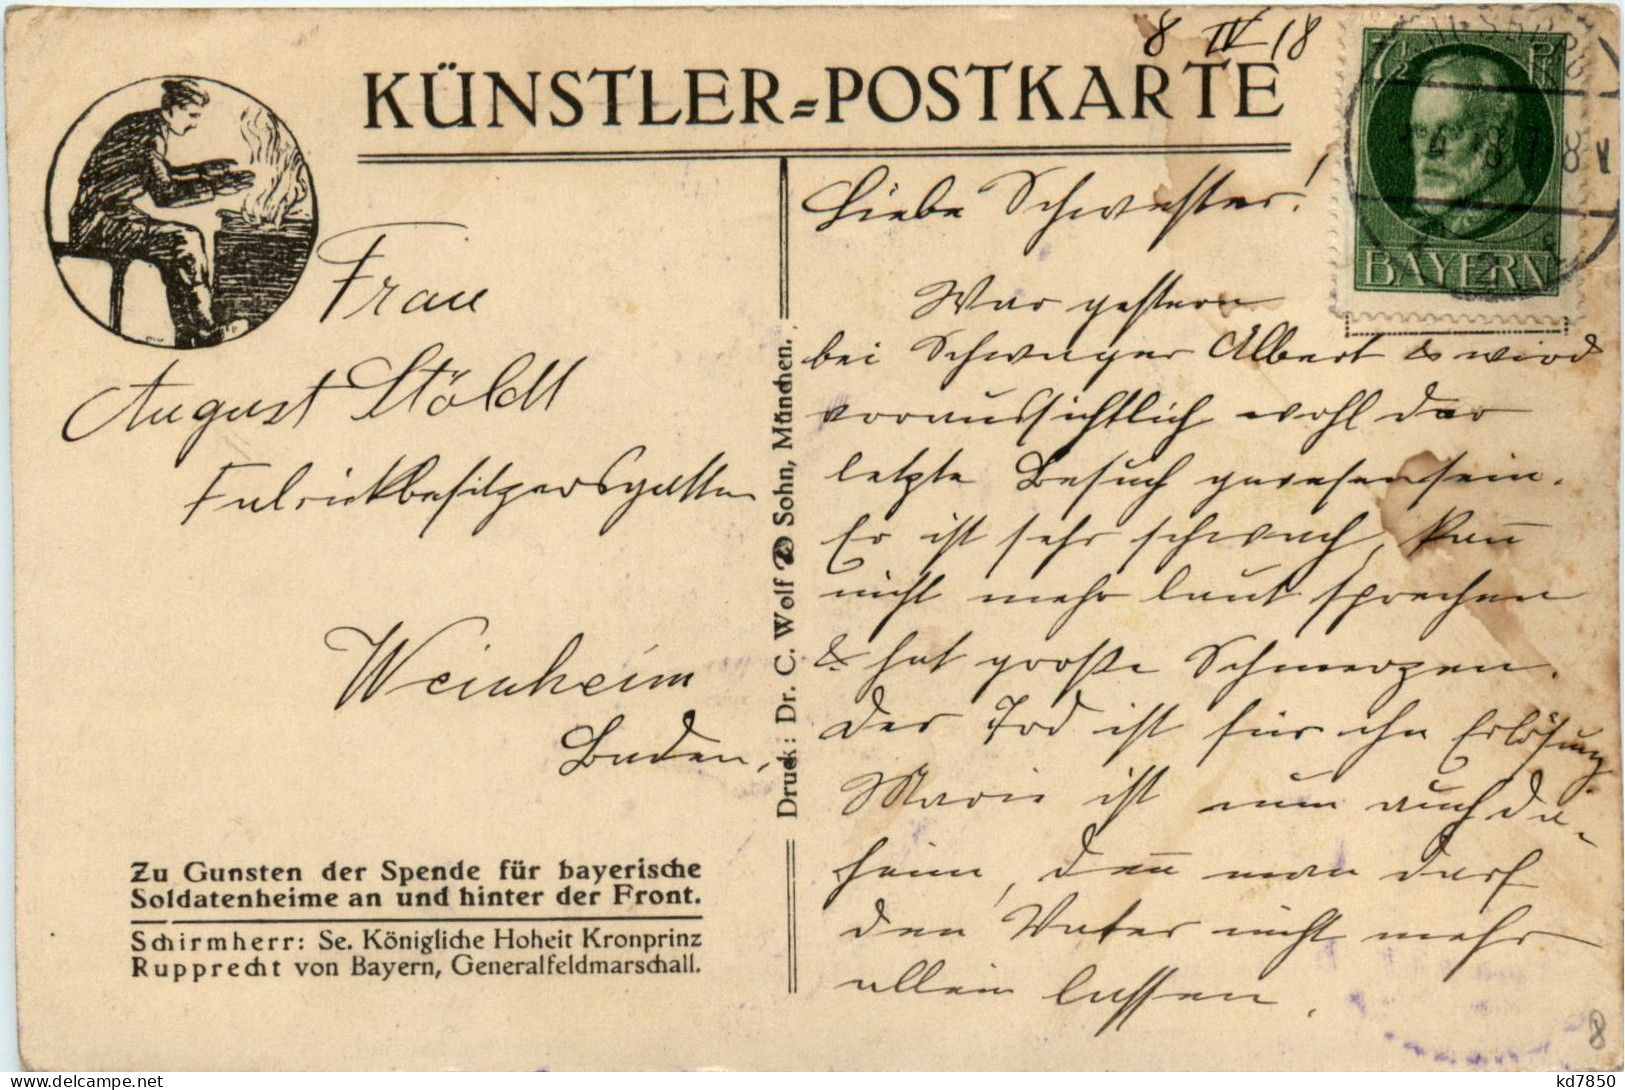 8 IV 18
KÜNSTLER=POSTKARTE
7½ P
BAYERN
Frau
August Stöldt
Fabrikbesitzersgattin
Weinheim
Baden,
Zu Gunsten der Spende für bayerische
Soldatenheime an und hinter der Front.
Schirmherr: Se. Königliche Hoheit Kronprinz
Rupprecht von Bayern, Generalfeldmarschall.
Druck: Dr. C. Wolf & Sohn, München.
Liebe Schwester!
War gestern
bei Schwager Albert & wird
voraussichtlich wohl der
letzte Besuch gewesen sein.
Er ist sehr schwach, kan̄
nicht mehr laut sprechen
& hat große Schmerzen.
Der Tod ist für ihn Erlösung.
Marie ist nun auch da-
heim, den̄ man darf
den Vater nicht mehr
allein lassen.
8
kd7850